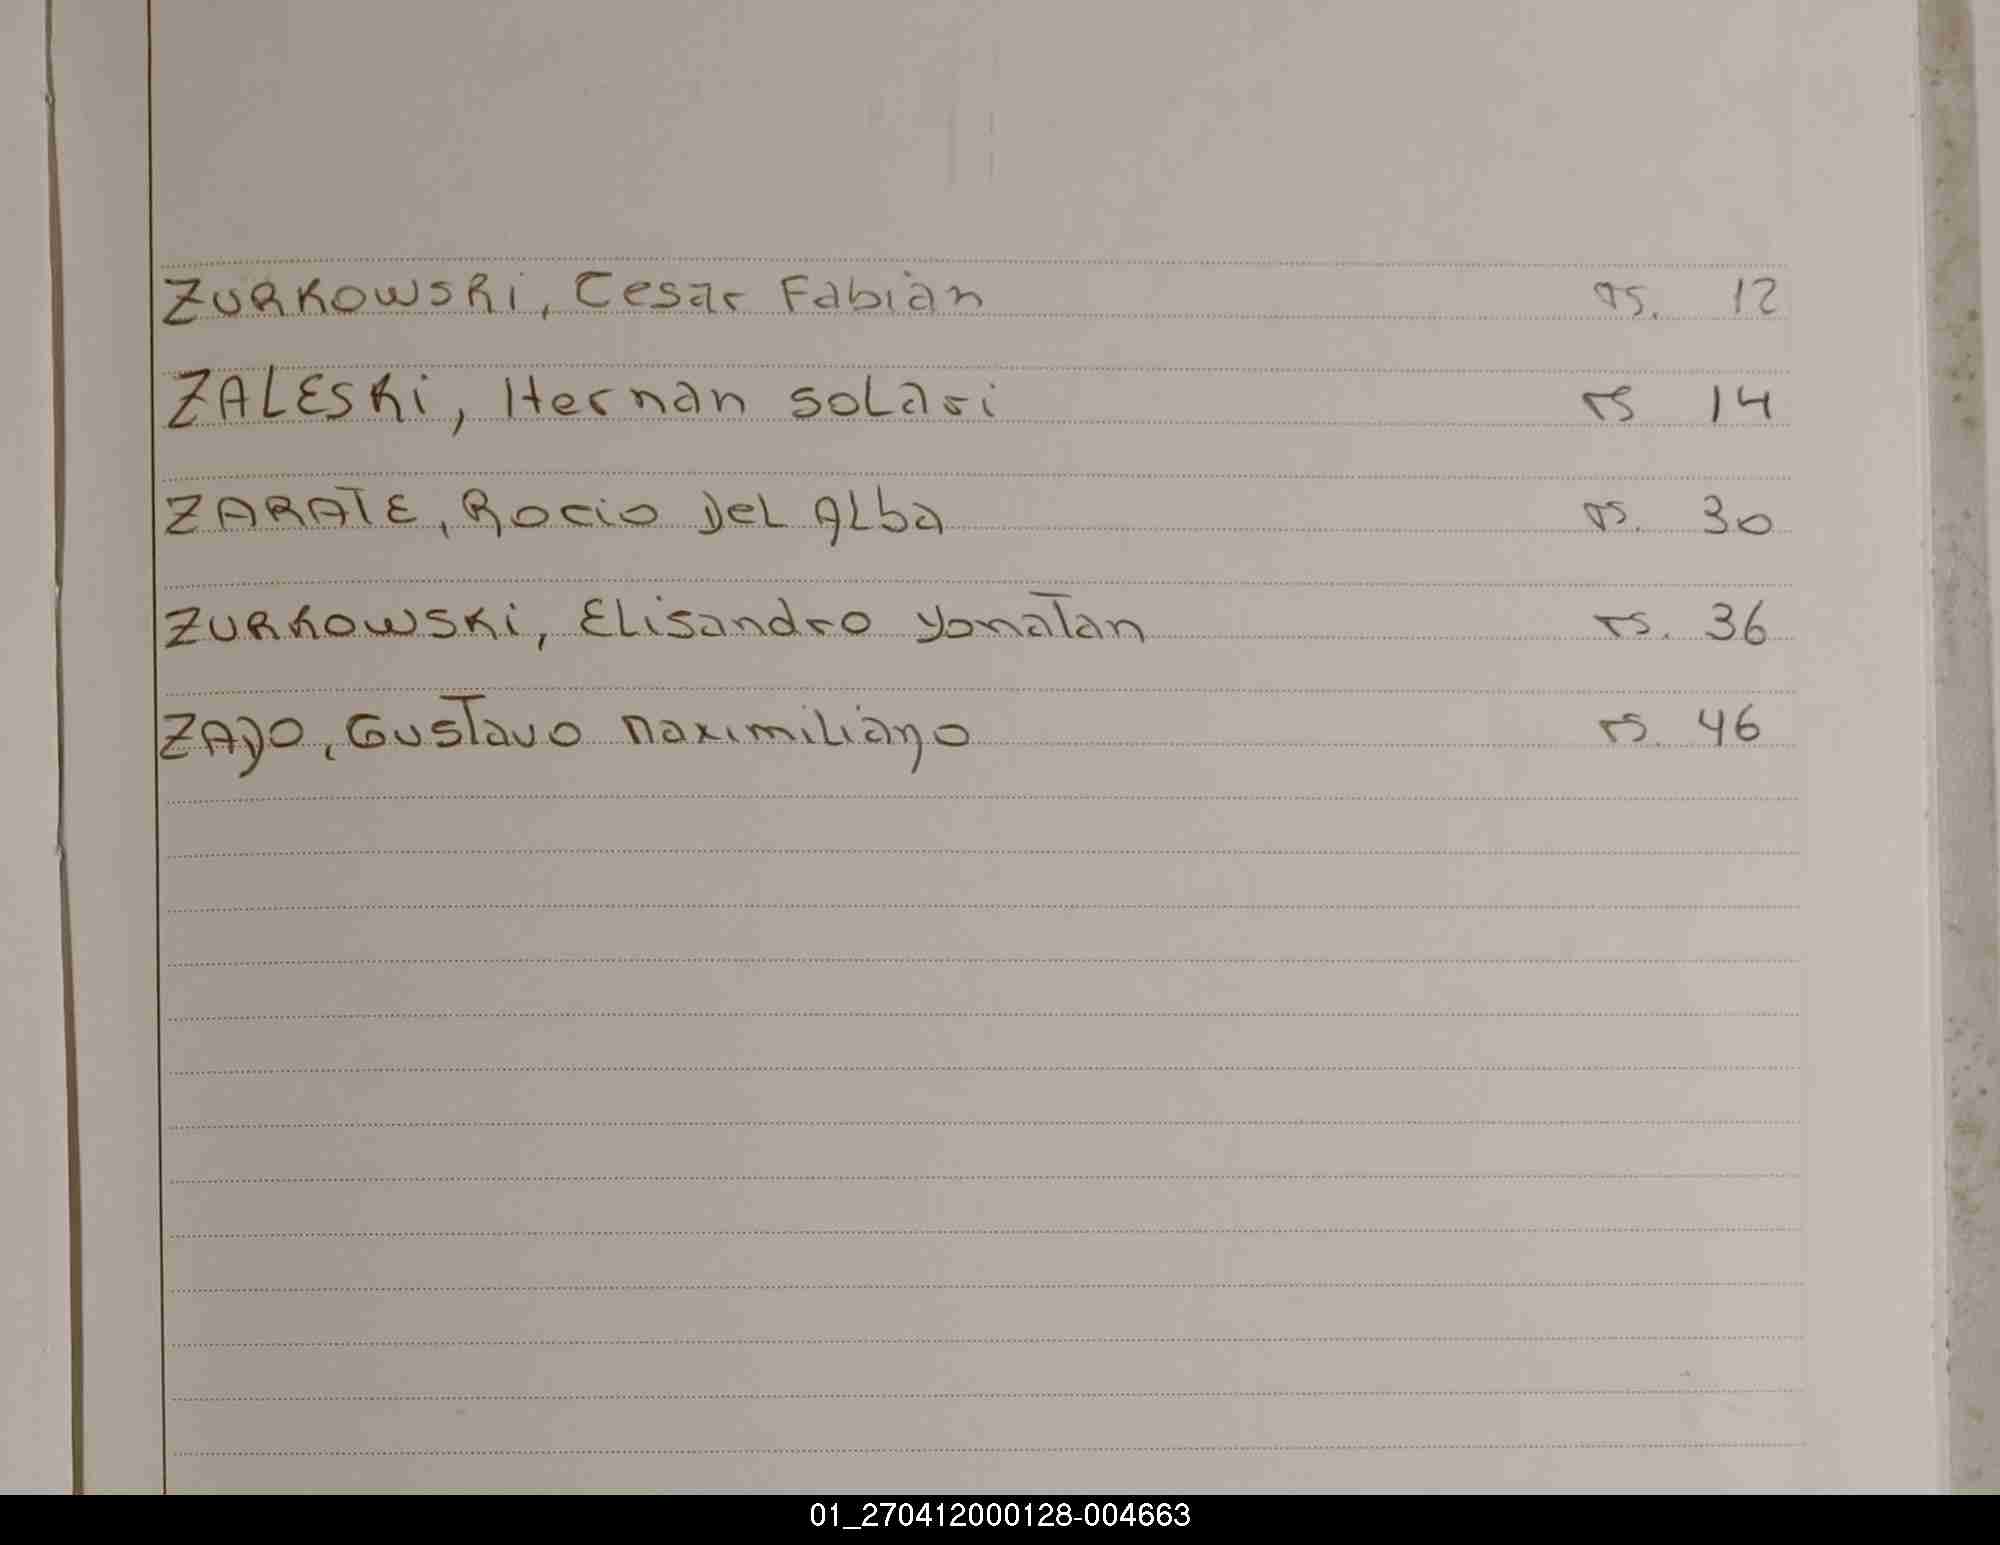 ZURKOWSKi, Cesar Fabian rs. 12
ZALESKi, Hernan soLari rs 14
ZARATE, Rocio DeL ALba rs. 30
ZURKOWSKi, ELisandro yonatan rs. 36
ZADO, Gustavo maximiLiano rs. 46
01_270412000128-004663